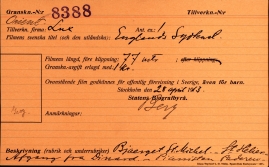 Granskn.-Nr 8388 Tillverkn.-Nr
Orient
Tillverkn. firma: Lux Ant. ex.: 1
Filmens svenska titel (och den utländska): Englands Sydkust
Filmens längd, före klippning: 77 mts, efter klippning:
Granskn.-avgift erlagd med: 1 kr.
Ovanstående film godkännes för offentlig förevisning i Sverige, även för barn.
Stockholm den 28 april 1913
Statens Biografbyrå.
Berg
Anmärkningar:
Beskrivning (rubrik och underrubriker) Bjaerget St. Michel - St. Helier
Afgang fra Dinard -